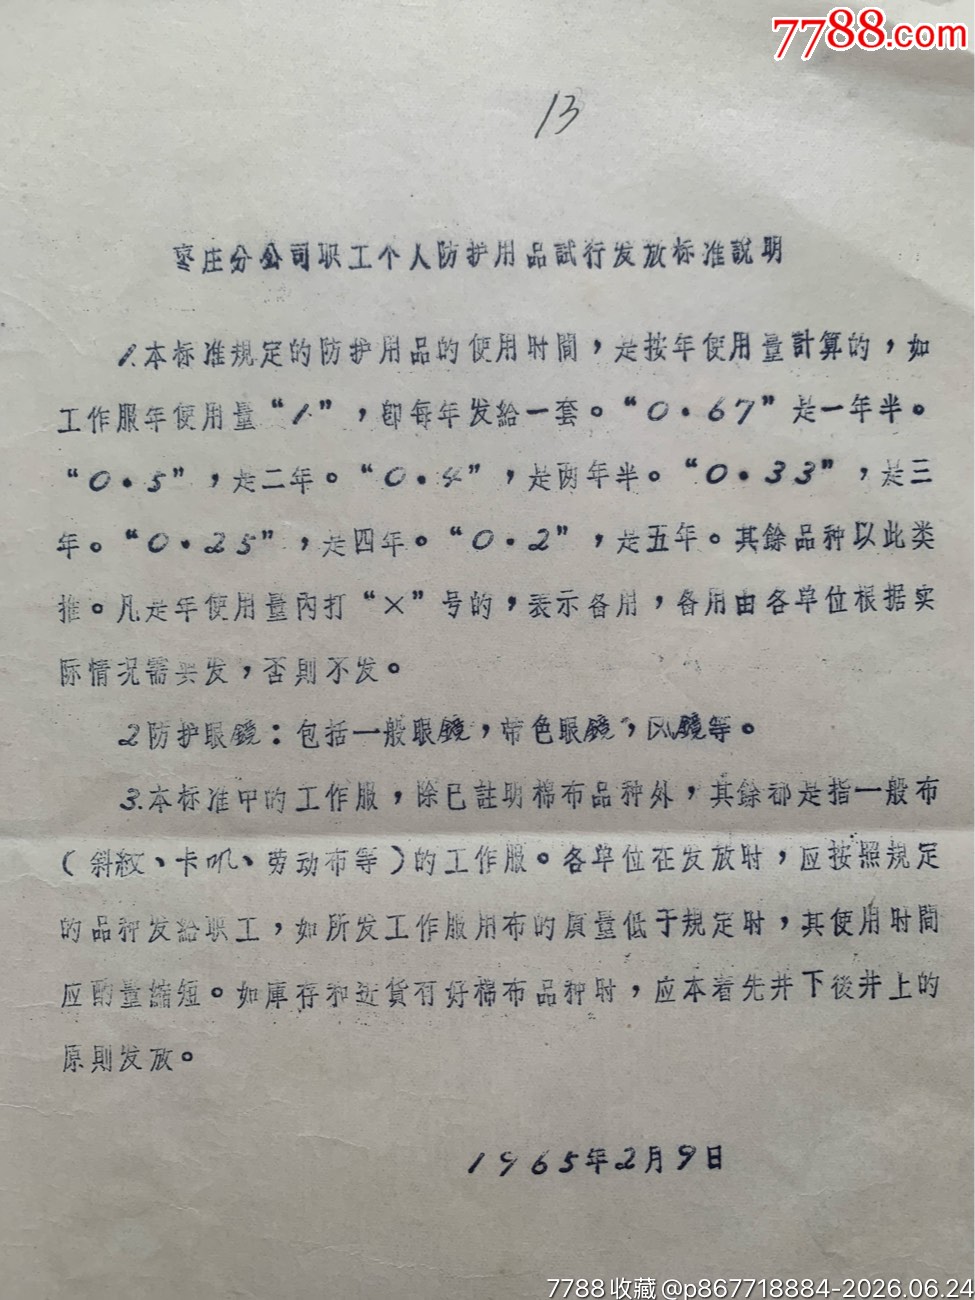 7788.com
13
枣庄分公司职工个人防护用品試行发放标准說明
1.本标准規定的防护用品的使用时間，是按年使用量計算的，如
工作服年使用量“1”，即每年发給一套。“0.67”是一年半。
“0.5”，是二年。“0.4”，是两年半。“0.33”，是三
年。“0.25”，是四年。“0.2”，是五年。其餘品种以此类
推。凡是年使用量內打“×”号的，表示备用，备用由各单位根据实
际情况需要发，否則不发。
2防护眼鏡：包括一般眼鏡，带色眼鏡，风鏡等。
3.本标准中的工作服，除已註明棉布品种外，其餘都是指一般布
（斜紋、卡叽、劳动布等）的工作服。各单位在发放时，应按照規定
的品种发給职工，如所发工作服用布的质量低于規定时，其使用时間
应酌量縮短。如庫存和近貨有好棉布品种时，应本着先井下後井上的
原則发放。
1965年2月9日
7788收藏@p867718884-2026.06.24